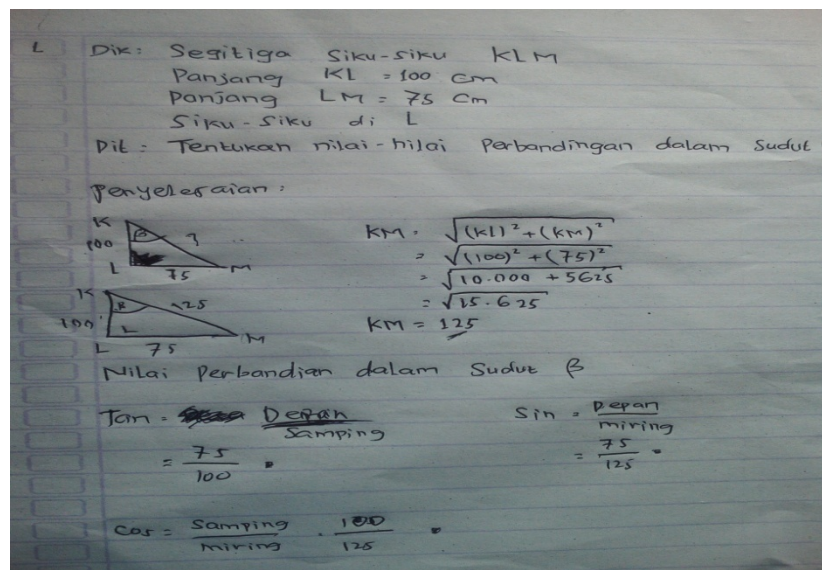 1 Dik: Segitiga Siku-siku KLM
Panjang KL = 100 cm
Panjang LM = 75 cm
Siku-Siku di L
Dit: Tentukan nilai-nilai Perbandingan dalam Sudut
Penyelesaian:
K
100 β ?
L 75 M
KM = √(KL)² + (KM)²
= √(100)² + (75)²
= √10.000 + 5625
= √15.625
KM = 125
K
100 125
L 75 M
Nilai Perbandian dalam Sudut β
Tan = Depan / Samping
= 75 / 100
Sin = Depan / miring
= 75 / 125
Cos = Samping / miring = 100 / 125